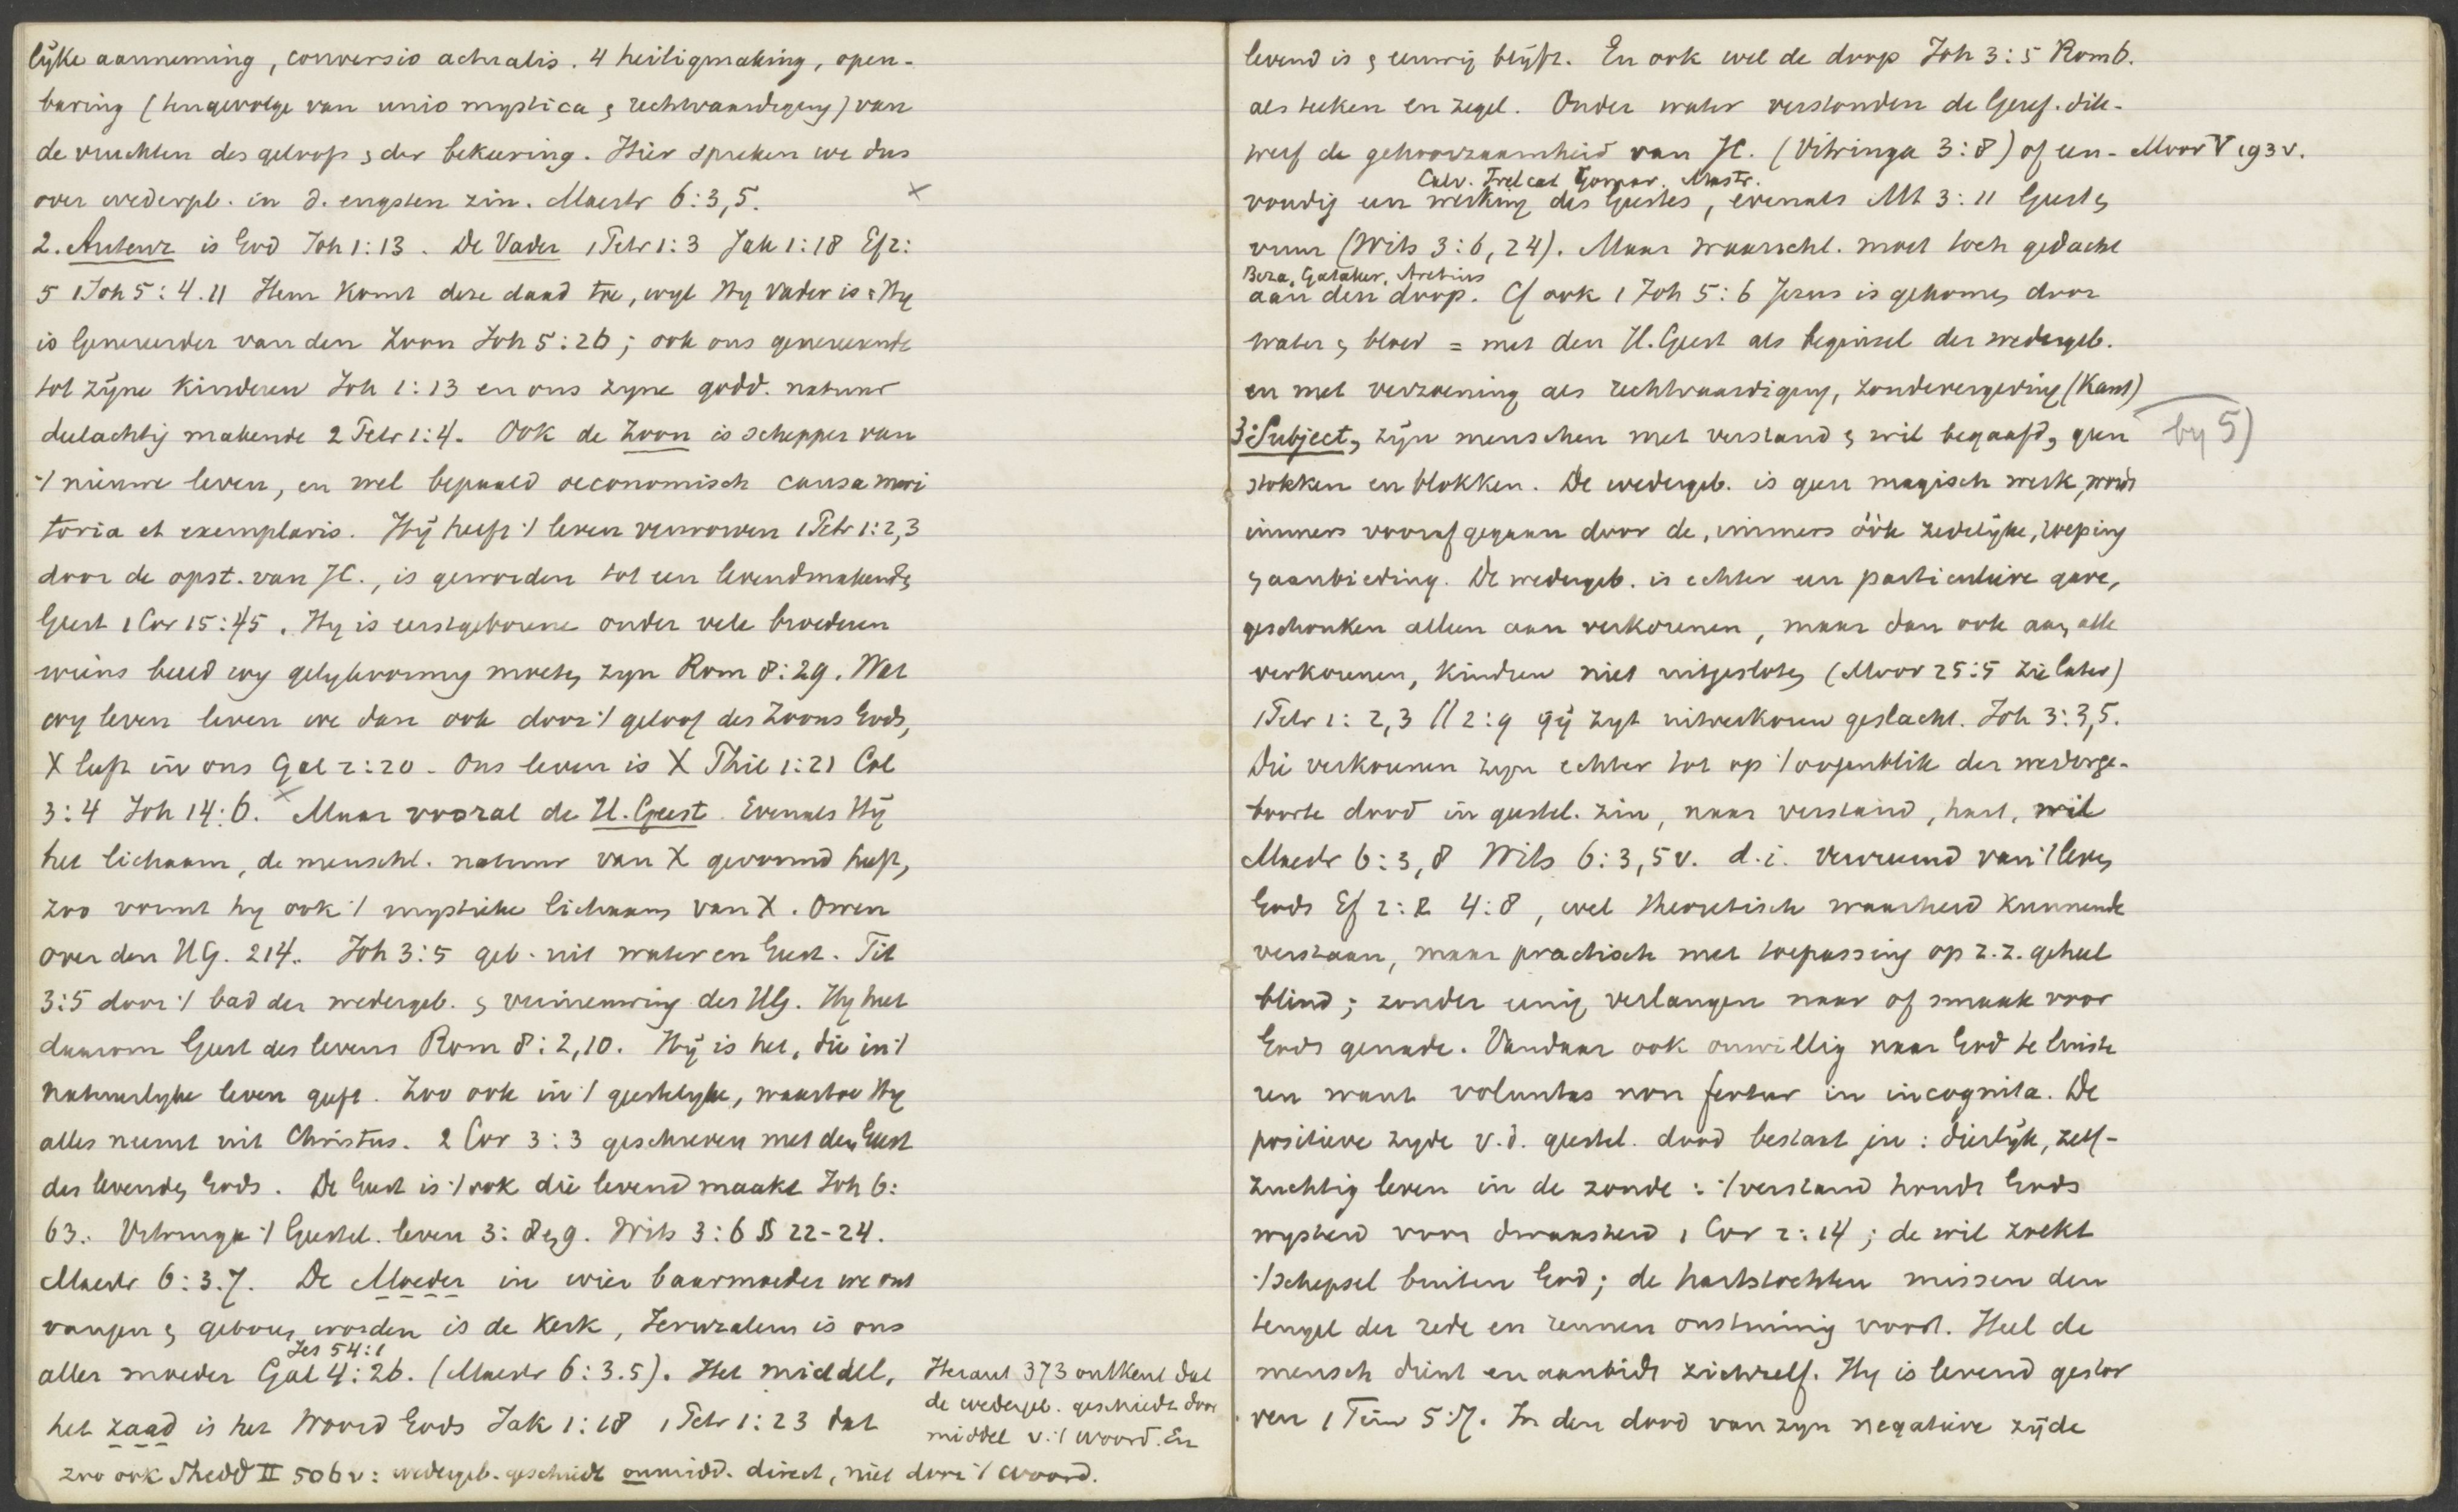 lijke aanneming, conversio actualis. 4 heiligmaking, open-
baring (tengevolge van unio mystica & rechtvaardiging) van
de vruchten des geloofs & der bekeering. Hier spreken we dus
over wedergeb. in d. engsten zin. Mastr 6:3,5. ×
2. Auteur is God Joh 1:13. De Vader 1 Petr 1:3 Jak 1:18 Ef 2:
5 1 Joh 5:4.11 Hem komt deze daad toe, wijl Hy Vader is & Hy
is Genereerder van den Zoon Joh 5:26; ook ons genereerende
tot zijne kinderen Joh 1:13 en ons zyne godd. natuur
deelachtig makende 2 Petr 1:4. Ook de Zoon is schepper van
't nieuwe leven, en wel bepaald oeconomisch causa meri
toria et exemplaris. Hij heeft 't leven verworven 1 Petr 1:2,3
door de opst. van JC., is geworden tot een levendmakende
Geest 1 Cor 15:45. Hy is eerstgeborene onder vele broederen
wiens beeld wy gelykvormig moeten zyn Rom 8:29. Wat
wy leven leven we dan ook door 't geloof des Zoons Gods,
X leeft in ons Gal 2:20. Ons leven is X Phil 1:21 Col
3:4 Joh 14:6. × Maar vooral de H. Geest. Evenals Hij
het lichaam, de menschl. natuur van X gevormd heeft,
zoo vormt hy ook 't mystieke lichaam van X. Owen
over den HG. 214. Joh 3:5 geb. uit water en Geest. Tit
3:5 door 't bad der wedergeb. & vernieuwing des HG. Hy heet
daarom Geest des levens Rom 8:2,10. Hij is het, die in 't
natuurlyke leven geeft. Zoo ook in 't geestelyke, waartoe Hy
alles neemt uit Christus. 2 Cor 3:3 geschreven met den Geest
des levenden Gods. De Geest is 't ook die levend maakt Joh 6:
63. Vitringa 't Geestel. leven 3:8 en 9. Wits 3:6 § 22-24.
Mastr 6:3.7. De Moeder in wier baarmoeder we ont
vangen & geboren worden is de Kerk, Jeruzalem is ons
Jes 54:1
aller moeder Gal 4:26. (Mastr 6:3.5). Het middel,
het zaad is het Woord Gods Jak 1:18 1 Petr 1:23 dat
Heraut 373 ontkent dat
de wedergeb. geschiedt door
middel v. 't woord. En
zoo ook Shedd II 506v: wedergeb. geschiedt onmidd. direct, niet door 't woord.
levend is & eeuwig blijft. En ook wel de doop Joh 3:5 Rom 6.
als teeken en zegel. Onder water verstonden de Geref. dik-
werf de gehoorzaamheid van JC. (Vitringa 3:8) of een- Moor V 193v.
Calv. Trelcat Gomar. Mastr.
voudig een werking des Geestes, evenals Mt 3:11 Geest &
vuur (Wits 3:6,24). Maar waarschl. moet toch gedacht
Beza, Gataker, Aretius
aan den doop. Cf ook 1 Joh 5:6 Jezus is gekomen door
water & bloed = met den H. Geest als beginsel der wedergeb.
en met verzoening als rechtvaardiging, zondevergeving (Kant)
3. Subject, zijn menschen met verstand & wil begaafd, geen by 5)
stokken en blokken. De wedergeb. is geen magisch werk, wordt
immers voorafgegaan door de, immers óók zedelijke, roeping
& aanbieding. De wedergeb. is echter een particuliere gave,
geschonken alleen aan verkorenen, maar dan ook aan alle
verkorenen, kindren niet uitgesloten (Moor 25:5 zie later)
1 Petr 1:2,3 // 2:9 gij zyt uitverkoren geslacht. Joh 3:3,5.
Die verkorenen zyn echter tot op 't oogenblik der wederge-
boorte dood in geestel. zin, naar verstand, hart, wil
Mastr 6:3,8 Wits 6:3,5v. d.i. vervreemd van 't leven
Gods Ef 2:2 4:8, wel theoretisch waarheid kunnende
verstaan, maar practisch met toepassing op z.z. geheel
blind; zonder eenig verlangen naar of smaak voor
Gods genade. Vandaar ook onwillig naar God te luiste
ren want voluntas non fertur in incognita. De
positieve zyde v.d. geestel. dood bestaat in: dierlijk, zelf-
zuchtig leven in de zonde: 't verstand houdt Gods
wysheid voor dwaasheid 1 Cor 2:14; de wil zoekt
't schepsel buiten God; de hartstochten missen den
teugel der rede en rennen onstuimig voort. Heel de
mensch dient en aanbidt zichzelf. Hy is levend gestor
ven 1 Tim 5:7. In den dood van zyn negatieve zijde